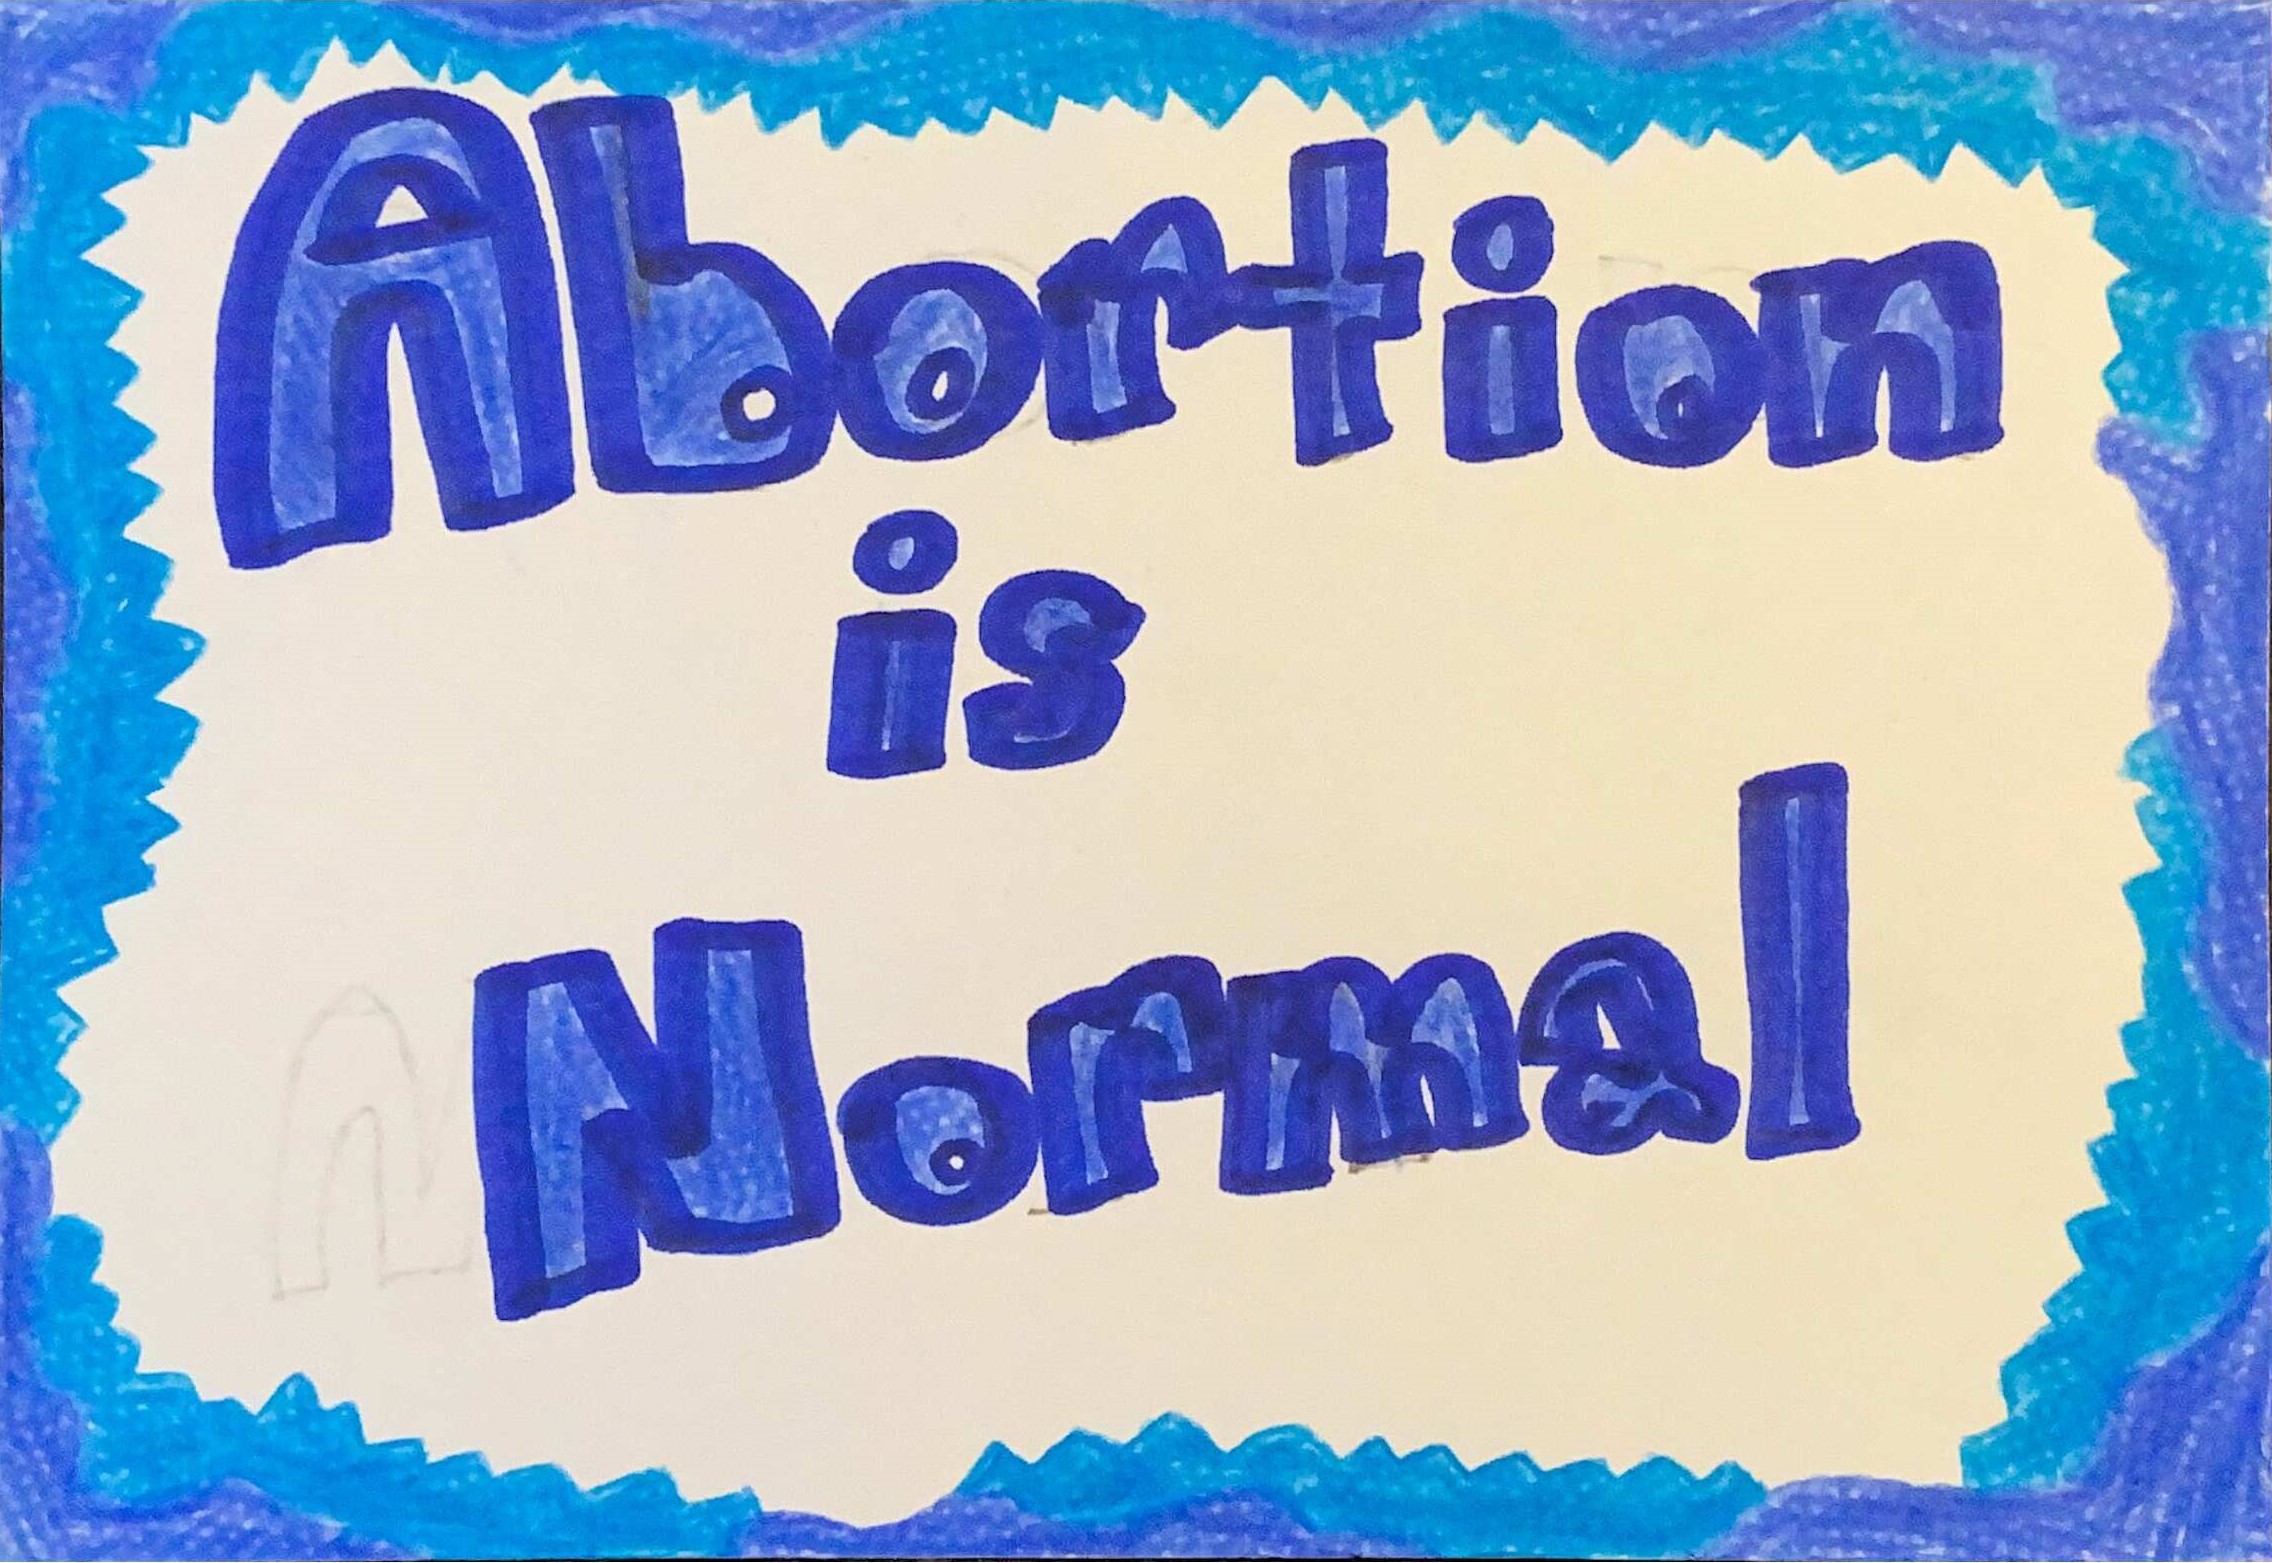 Abortion
is
Normal